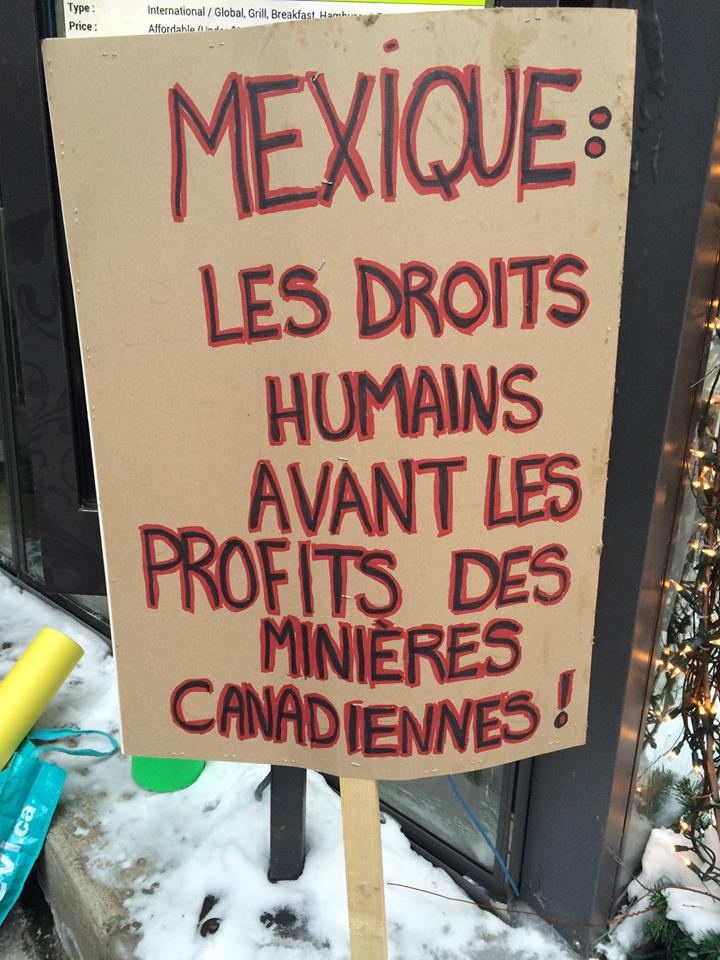 Type : International / Global, Grill, Breakfast,
Price : Affordable
MEXIQUE :
LES DROITS
HUMAINS
AVANT LES
PROFITS DES
MINIÈRES
CANADIENNES !